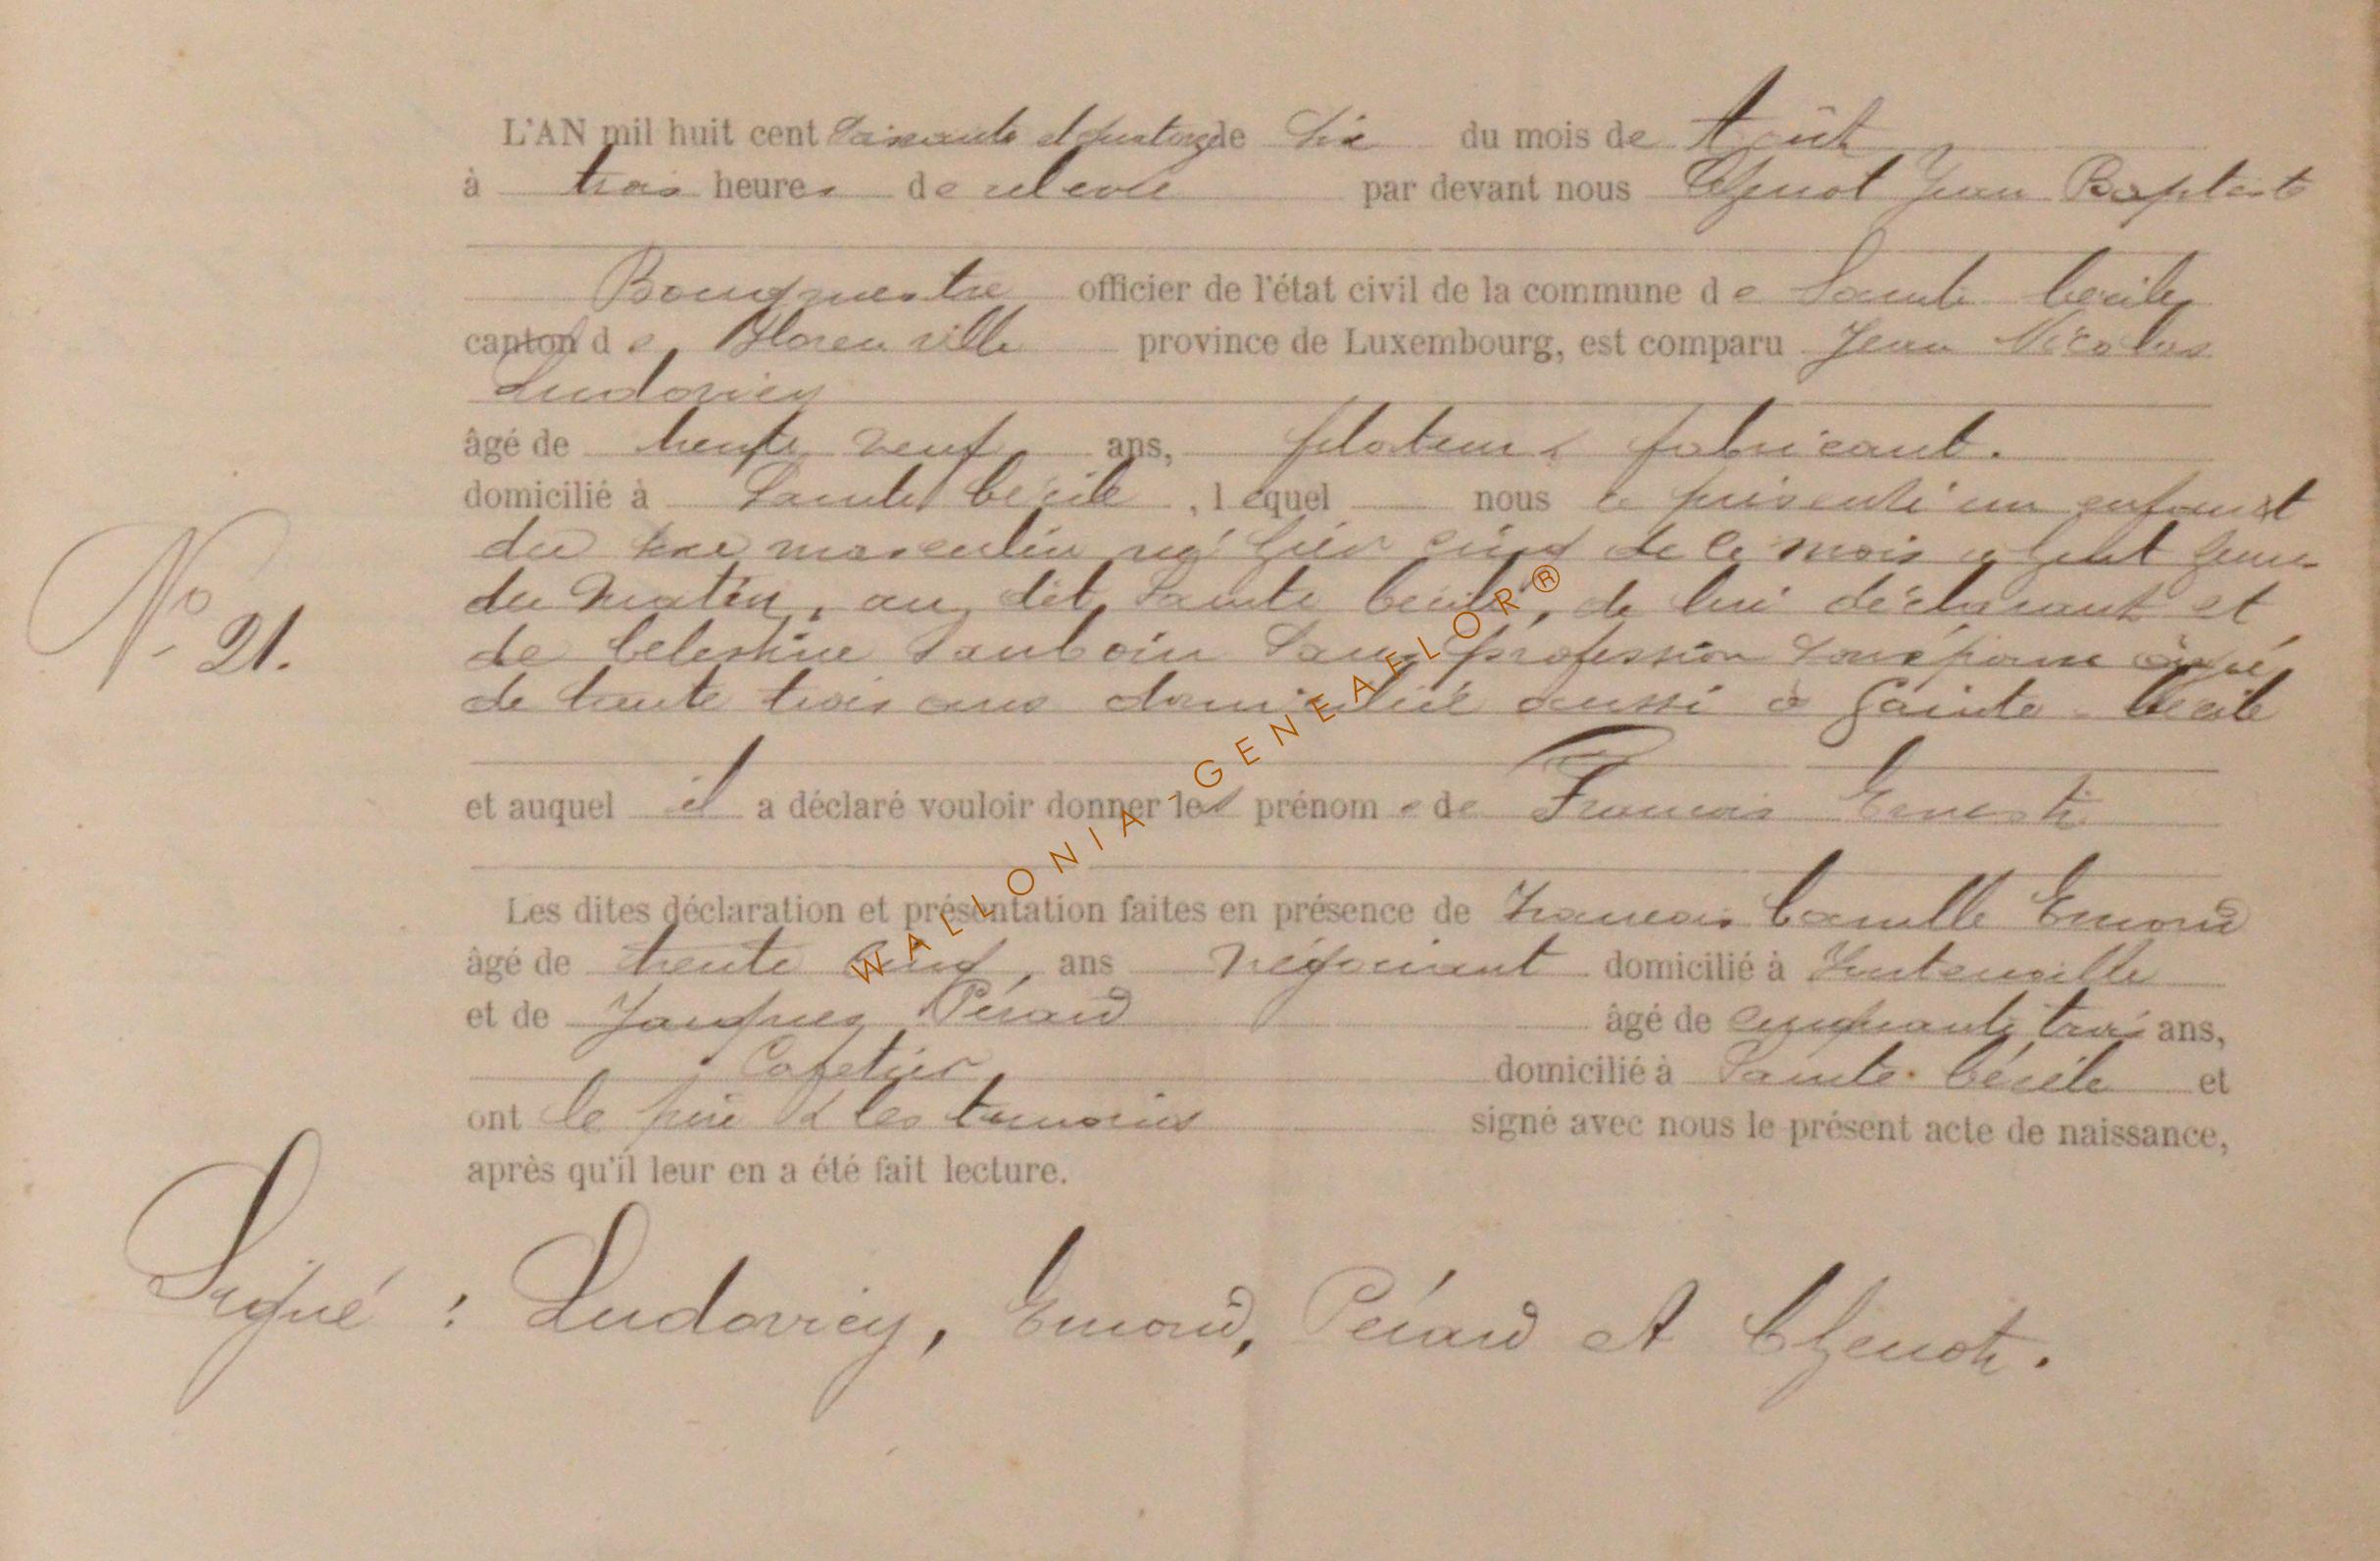 L'AN mil huit cent Soixante et quatorze le Six du mois de Août,
à trois heures de relevée par devant nous Chenot Jean Baptiste
Bourgmestre officier de l'état civil de la commune de Sainte Cécile
canton de Florenville province de Luxembourg, est comparu Jean Nicolas
Ludovicy
âgé de trente neuf ans, filateur & fabricant.
domicilié à Sainte Cécile, lequel nous a présenté un enfant
du sexe masculin né hier cinq de ce mois à huit heures
du matin, au dit Sainte Cécile, de lui déclarant et
de Celestine Sauboin Sans profession son épouse âgée
de trente trois ans domiciliée aussi à Sainte-Cécile
et auquel il a déclaré vouloir donner les prénoms de François Ernest
Les dites déclaration et présentation faites en présence de François Camille Emond
âgé de trente neuf, ans négociant domicilié à Fontenoille
et de Jacques Pérard âgé de cinquante trois ans,
Cafetier domicilié à Sainte-Cécile et
ont le père & les temoins signé avec nous le présent acte de naissance,
après qu'il leur en a été fait lecture.
No 21.
Signé : Ludovicy, Emond, Pérard et Chenot.
WALLONIA-GENEAFLOR®